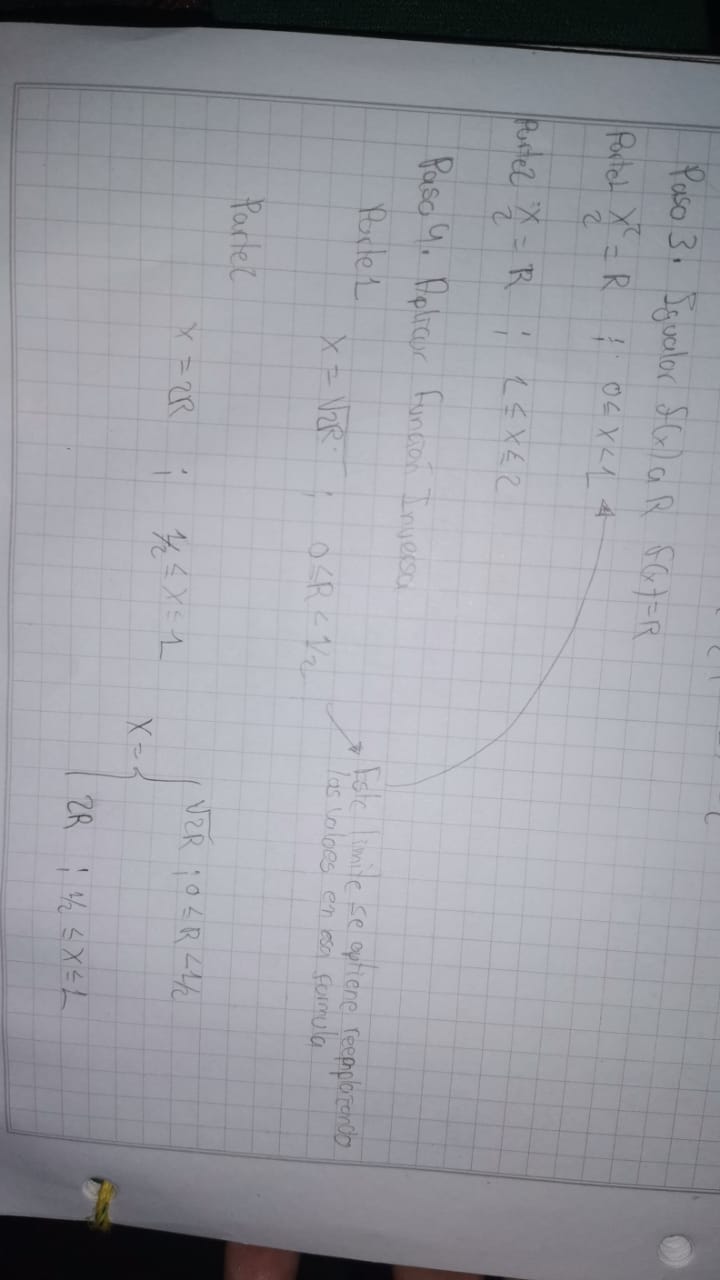 Paso 3. Igualar f(x) a R f(x)=R
Parte1 x²/2 = R ; 0 ≤ x < 1
Parte2 x/2 = R ; 1 ≤ x ≤ 2
Paso 4. Aplicar Función Inversa
Parte 1
x = √2R ; 0 ≤ R < 1/2
Este limite se optiene reemplazando
las valoes en esa formula
Parte2
x = 2R ; 1/2 ≤ x ≤ 1
x = { √2R ; 0 ≤ R < 1/2
2R ; 1/2 ≤ x ≤ 1